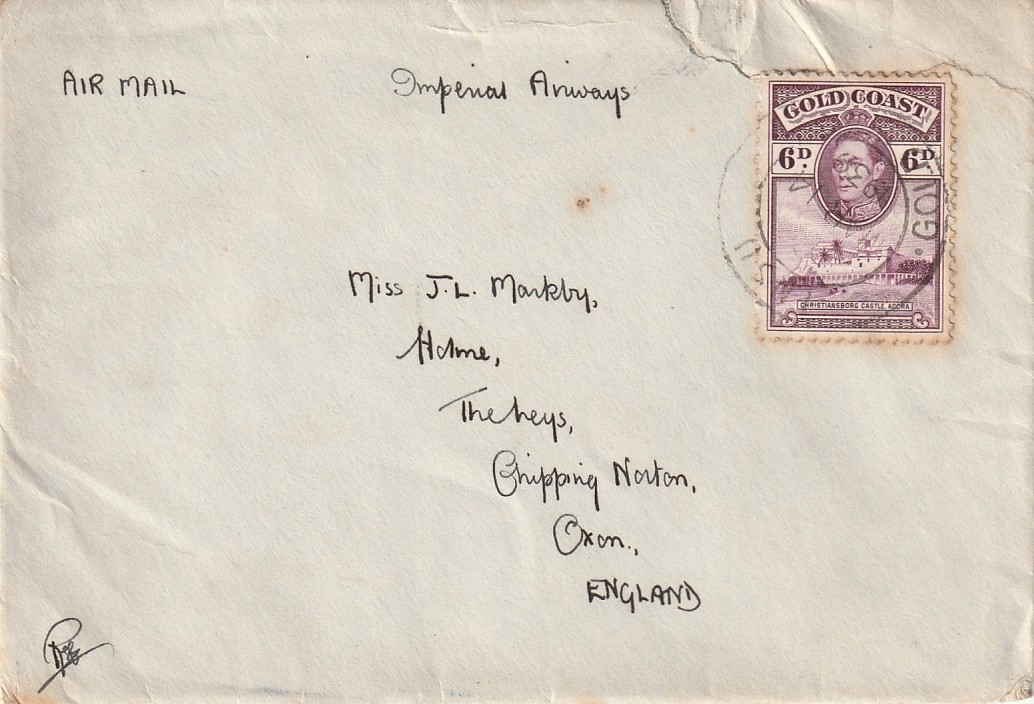 AIR MAIL
Imperial Airways
GOLD COAST
6D. 6D.
CHRISTIANSBORG CASTLE, ACCRA
Miss J.L. Markby,
Holme,
The Leys,
Chipping Norton,
Oxon.,
ENGLAND